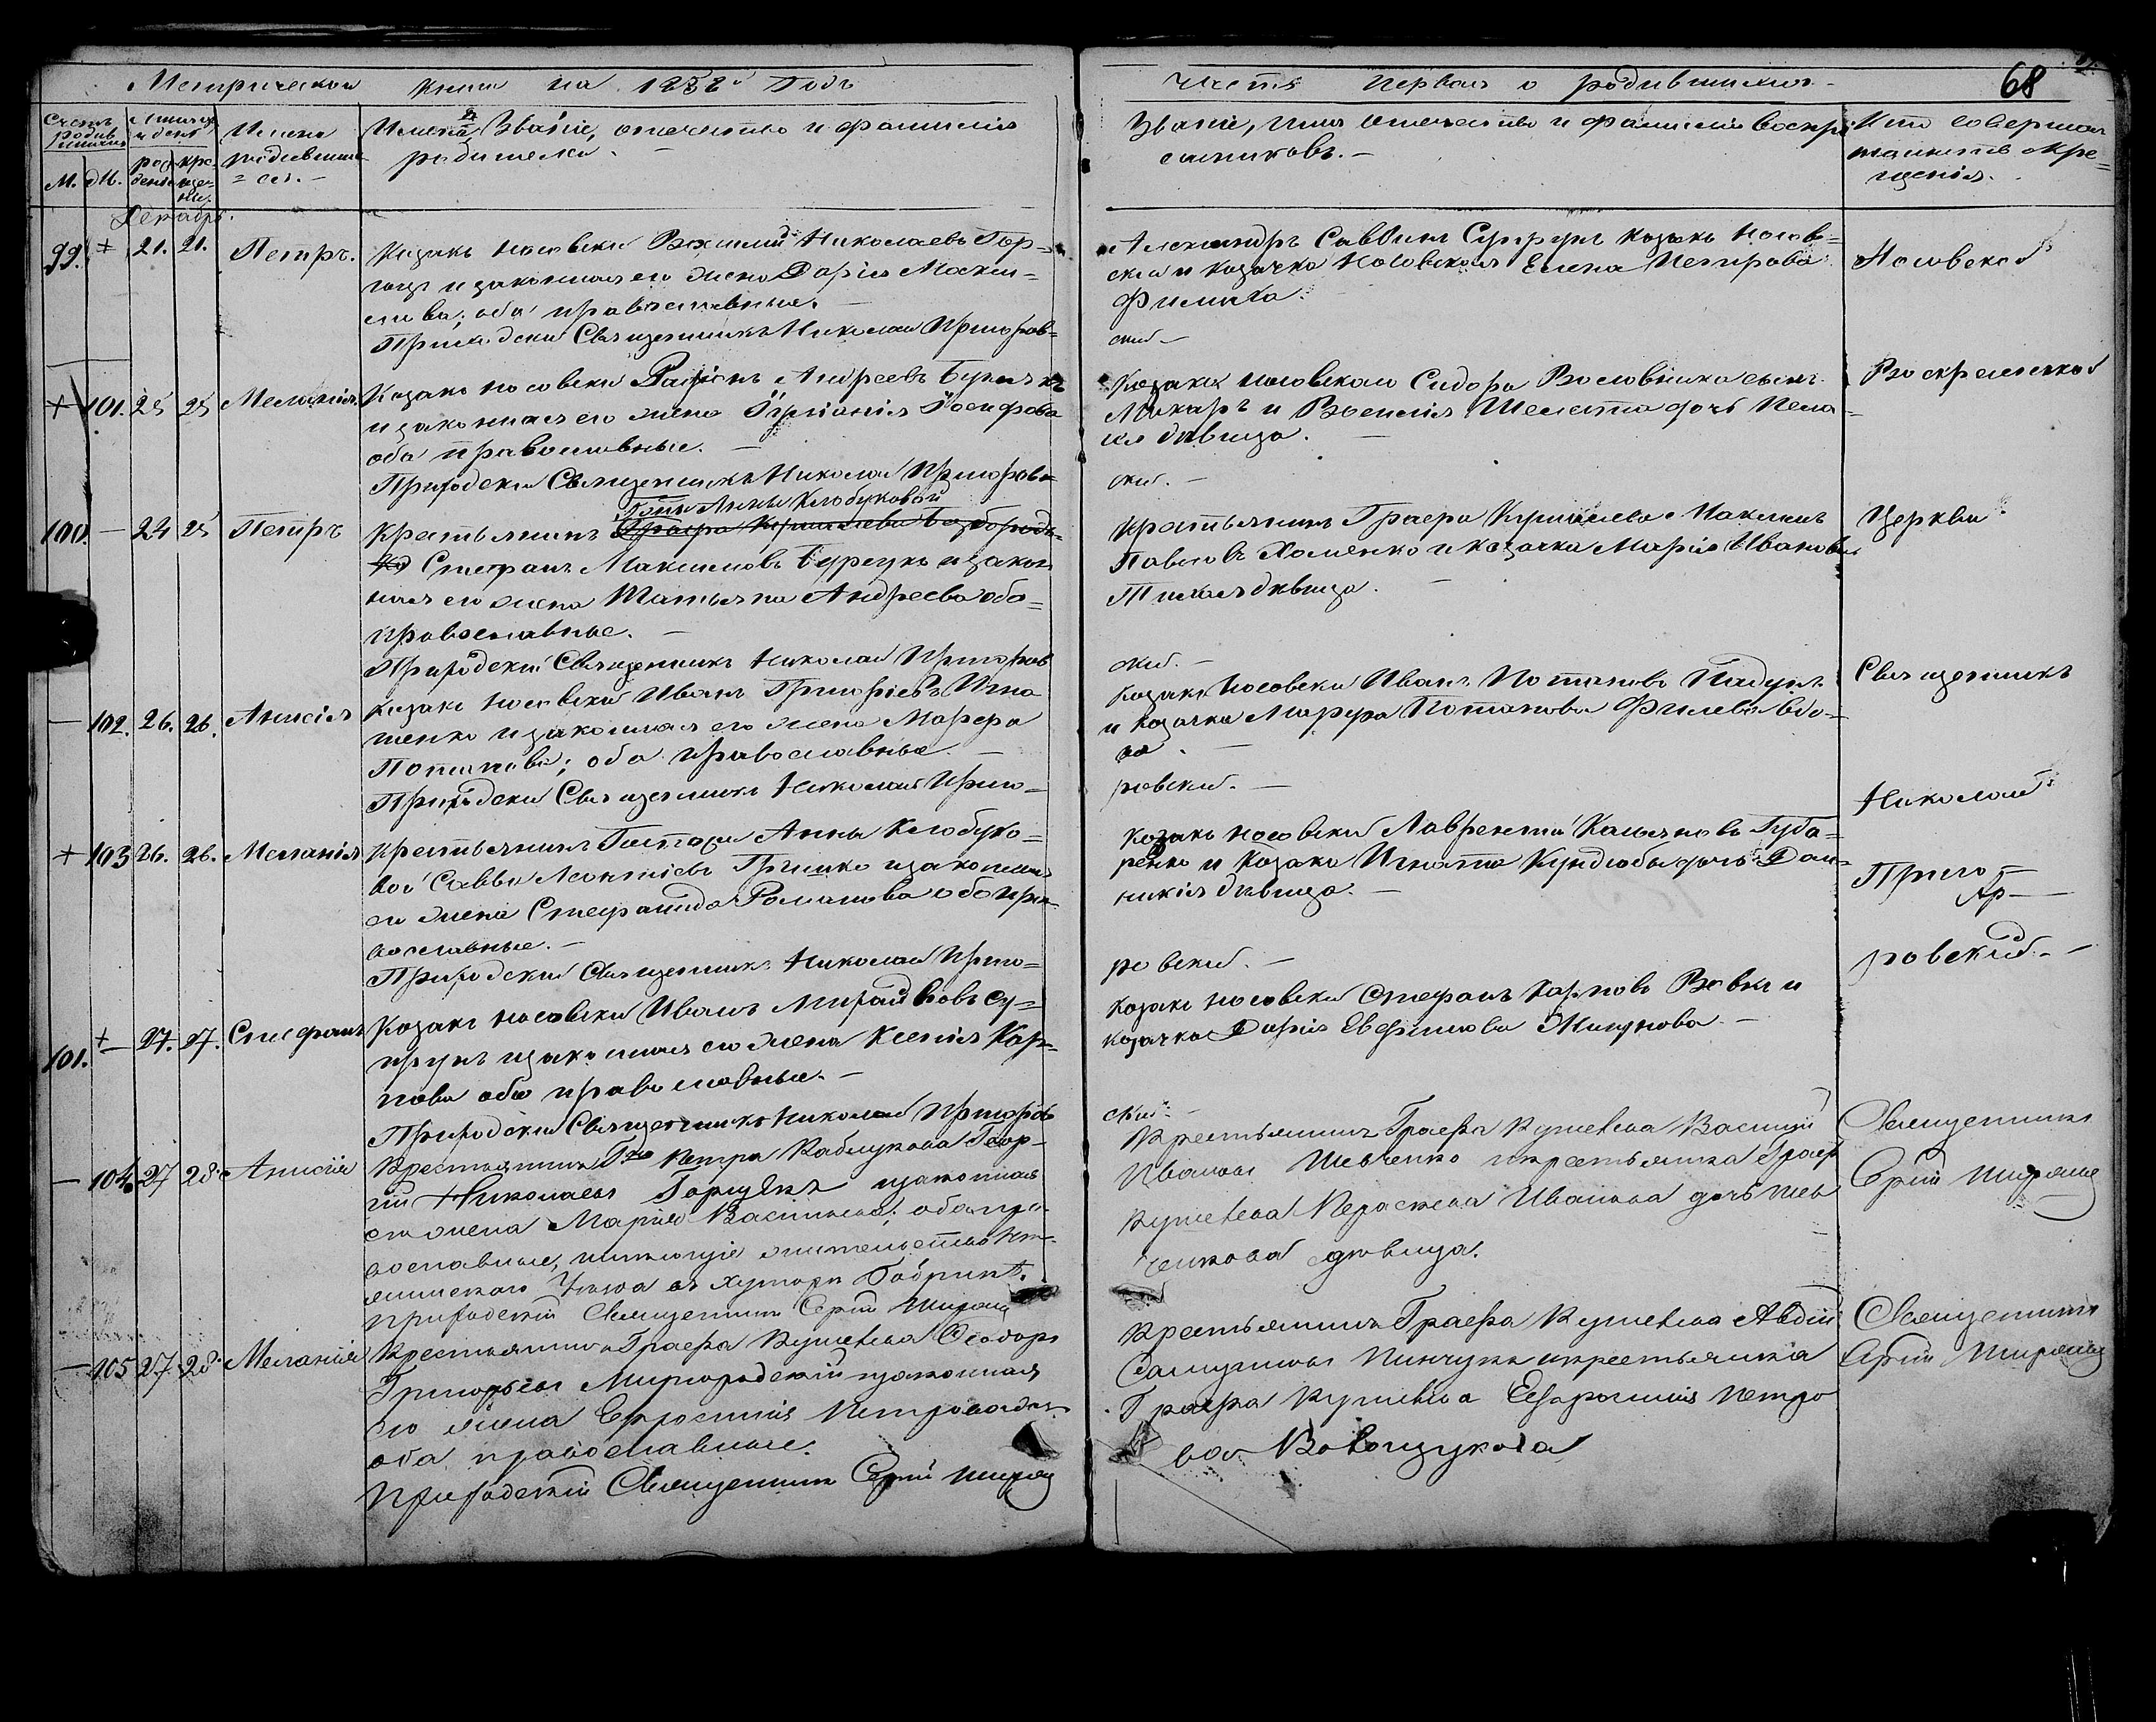 Метрической книги на 1858й Годъ
Часть первая о родившихся.
68
Счетъ родившихся
М. Ж.
Мѣсяцъ и день
рожденія
крещенія
Имена родившихся.
Имена, Званіе, отечество и фамилія
родителей.
Званіе, имя отечество и фамилія воспріе
емниковъ.
Кто совершал
таинство кре=
щенія.
Декабрь.
99. + 21. 21. Петръ.
Козакъ носовскій Василій Николаевъ Гор=
и законная его жена Дарія Макси=
мова; оба православные.
Приходскій Священникъ Николай Пригоров=
Александръ Саввинъ Супрунъ козакъ носов=
скій и козачка носовская Елена Петрова
скій.
Носовской
+ 101. 25 25 Меланія
Козакъ носовскій Андреевъ
и законная его жена Іосифова
оба православные.
Приходскій Священникъ Николай Пригоров=
Козака носовскаго Сидора Воловника сынъ
Макаръ и дочь Пела=
гія дѣвица.
скій.
Воскресенской
100. — 24 25 Петръ
Гпжи Анны Клобуковой
Крестьянинъ Графа Кушелева Безбородь=
ко Стефанъ Максимовъ и закон
ная его жена Татьяна Андреева оба=
православные.
Приходскій Священникъ Николай Пригоров
Крестьянинъ Графа Кушелева Максимъ
Павловъ Хоменко и козачка Марія Иванова
дѣвица.
скій.
Церкви
— 102. 26. 26. Анисія
Козакъ носовскій Иванъ Григоріевъ Игна
тенко и законная его жена Марфа
Потапова; оба православные.
Приходскій Священникъ Николай Приго=
Козакъ Носовскій Иванъ Потаповъ Падунъ
и козачка Марфа Потапова вдо=
ва.
ровскій.
Священникъ
Николай
+ 103 26. 26. Меланія
Крестьянинъ Госпожи Анны Клобуко=
вой Савва Леонтіевъ Гришко и законная
его жена Стефанида Романова оба пра
вославные.
Приходскій Священникъ Николай Приго=
Козакъ носовскій Лаврентій Касьяновъ Губа=
ренко и Козака Игната Кундюбы дочь Дом=
никія дѣвица.
ровскій.
Приго—
ровскій.
101. + — 27. 27. Стефанъ
Козакъ носовскій Иванъ Михайловъ Су=
прунъ и законная его жена Ксенія Кар=
пова оба православные.
Приходскій Священникъ Николай Пригоров
Козакъ носовскій Стефанъ Карповъ Вовкъ и
козачка Дарія Евфимова
скій.
— 104. 27 28 Анисія
Крестьянинъ Гжо Петра Кабаукова Геор=
гій Николаевъ Горщекъ и законная
его жена Марія Васильева; оба пра=
вославные,
въ хуторѣ
Приходскій Священникъ Сергій
Крестьянинъ Графа Кушелева Василій
Ивановъ Шевченко и крестьянка Графа
Кушелева Параскева Иванова дочь Шев
ченкова дѣвица.
Священникъ
Сергій
— 105 27. 28. Меланія
Крестьянинъ Графа Кушелева Ѳеодоръ
Григорьевъ Миргородскій и законная
его жена Ефросинія Петрова
оба православные.
Приходскій Священникъ Сергій
Крестьянинъ Графа Кушелева Авдій
Самуиловъ Пинчукъ и крестьянка
Графа Кушелева Ефросинія Петро
ва Вовощукова
Священникъ
Сергій